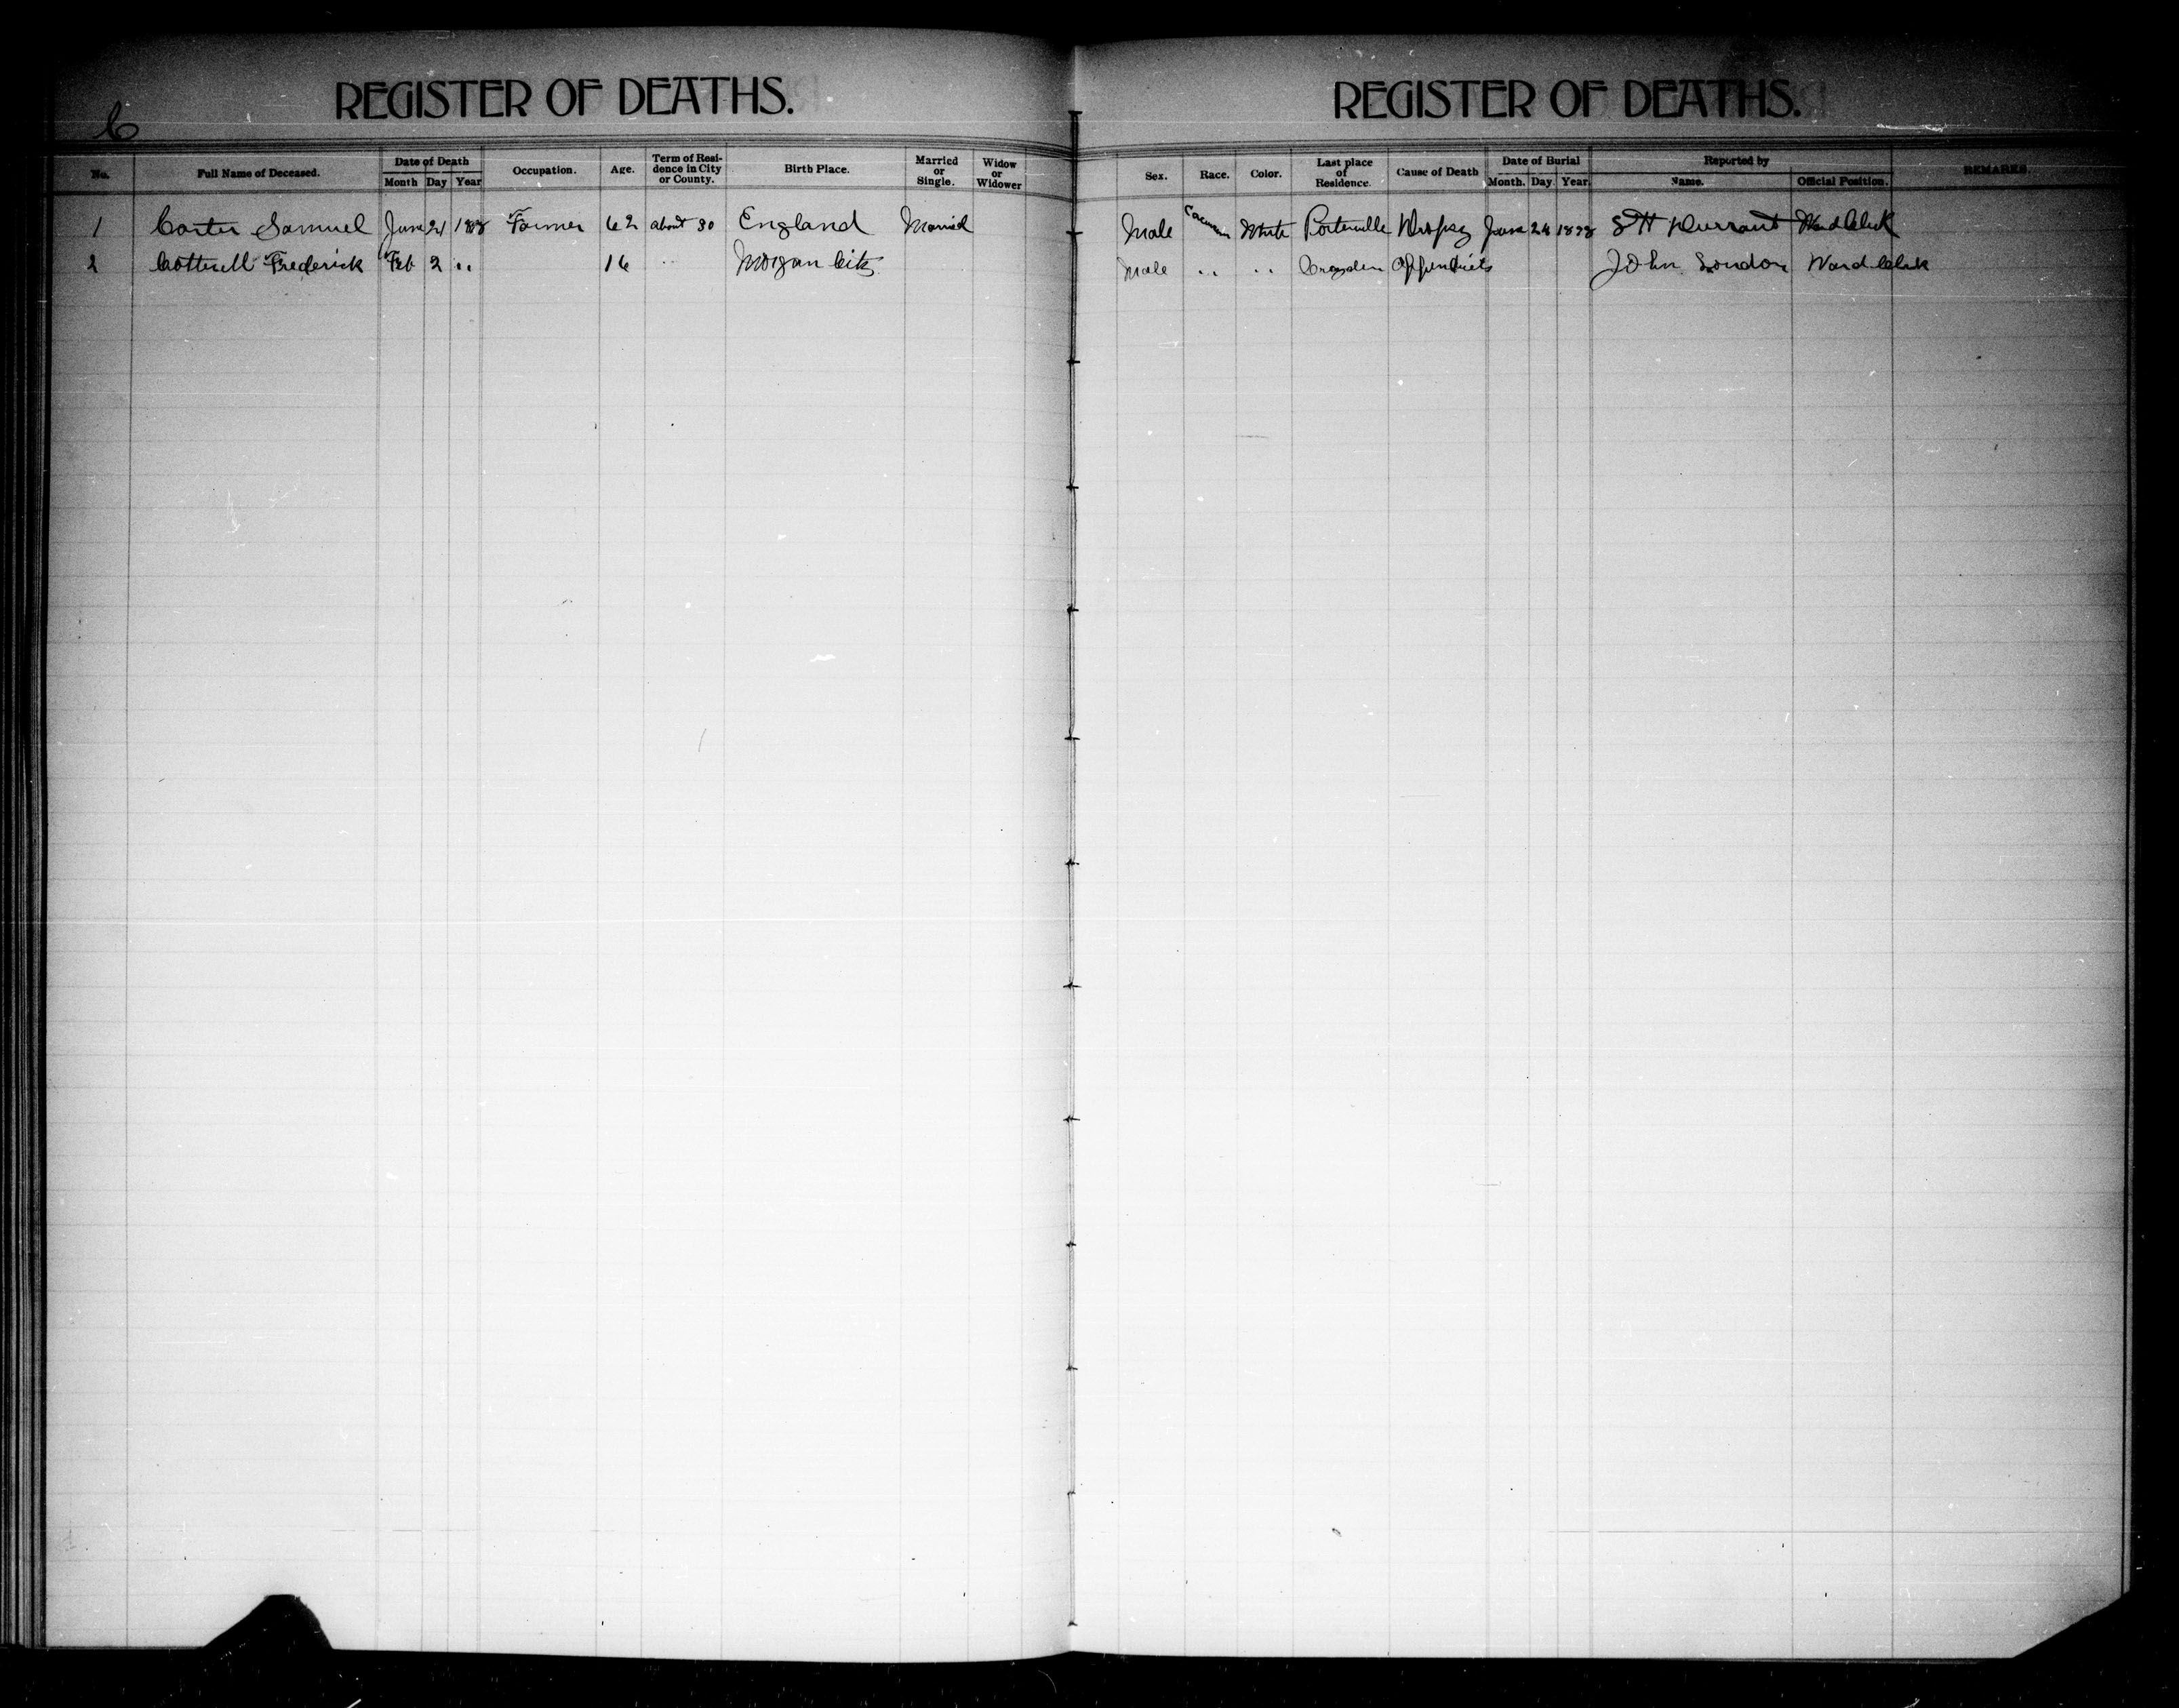 REGISTER OF DEATHS.
C
No. Full Name of Deceased. Date of Death Month Day Year Occupation. Age. Term of Residence in City or County. Birth Place. Married or Single. Widow or Widower
1 Carter Samuel June 21 1898 Farmer 62 about 30 England Married
2 Cottrell Frederick Feb 2 " 16 " Morgan City
REGISTER OF DEATHS.
Sex. Race. Color. Last place of Residence. Cause of Death Date of Burial Month. Day. Year. Reported by Name. Official Position. REMARKS.
Male White Porterville Dropsy June 24 1898 S H Durrant Ward Clerk
Male " " Croyden Appendicits John London Ward Clerk